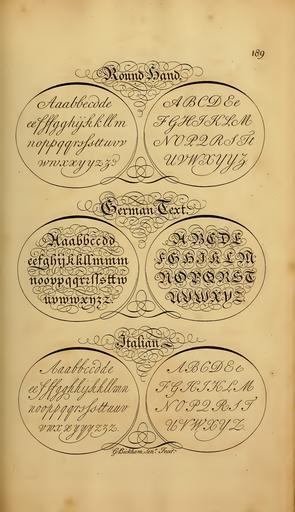 189
Round Hand.
Aaabbccdde
eefffgghijkkllm
noppqqrsſsttuvv
wwxxyyzz
ABCDEe
FGHIKLM
NOPQRSTt
UVWXYZ
German Text.
Aaabbccdd
eefghijkkllmmm
noovpqqrsſsttw
uvwwxyzz
ABCDE
FGHIKLM
NOPQRST
UVWXYZ
Italian
Aaabbccdde
eefffggkhijkkllmn
nooppqqrsſsttuuv
wxxxyyyzzz.
ABCDEe
FGHIKLM
NOPQRST
UVWXYZ.
G. Bickham Senr. Fecit.